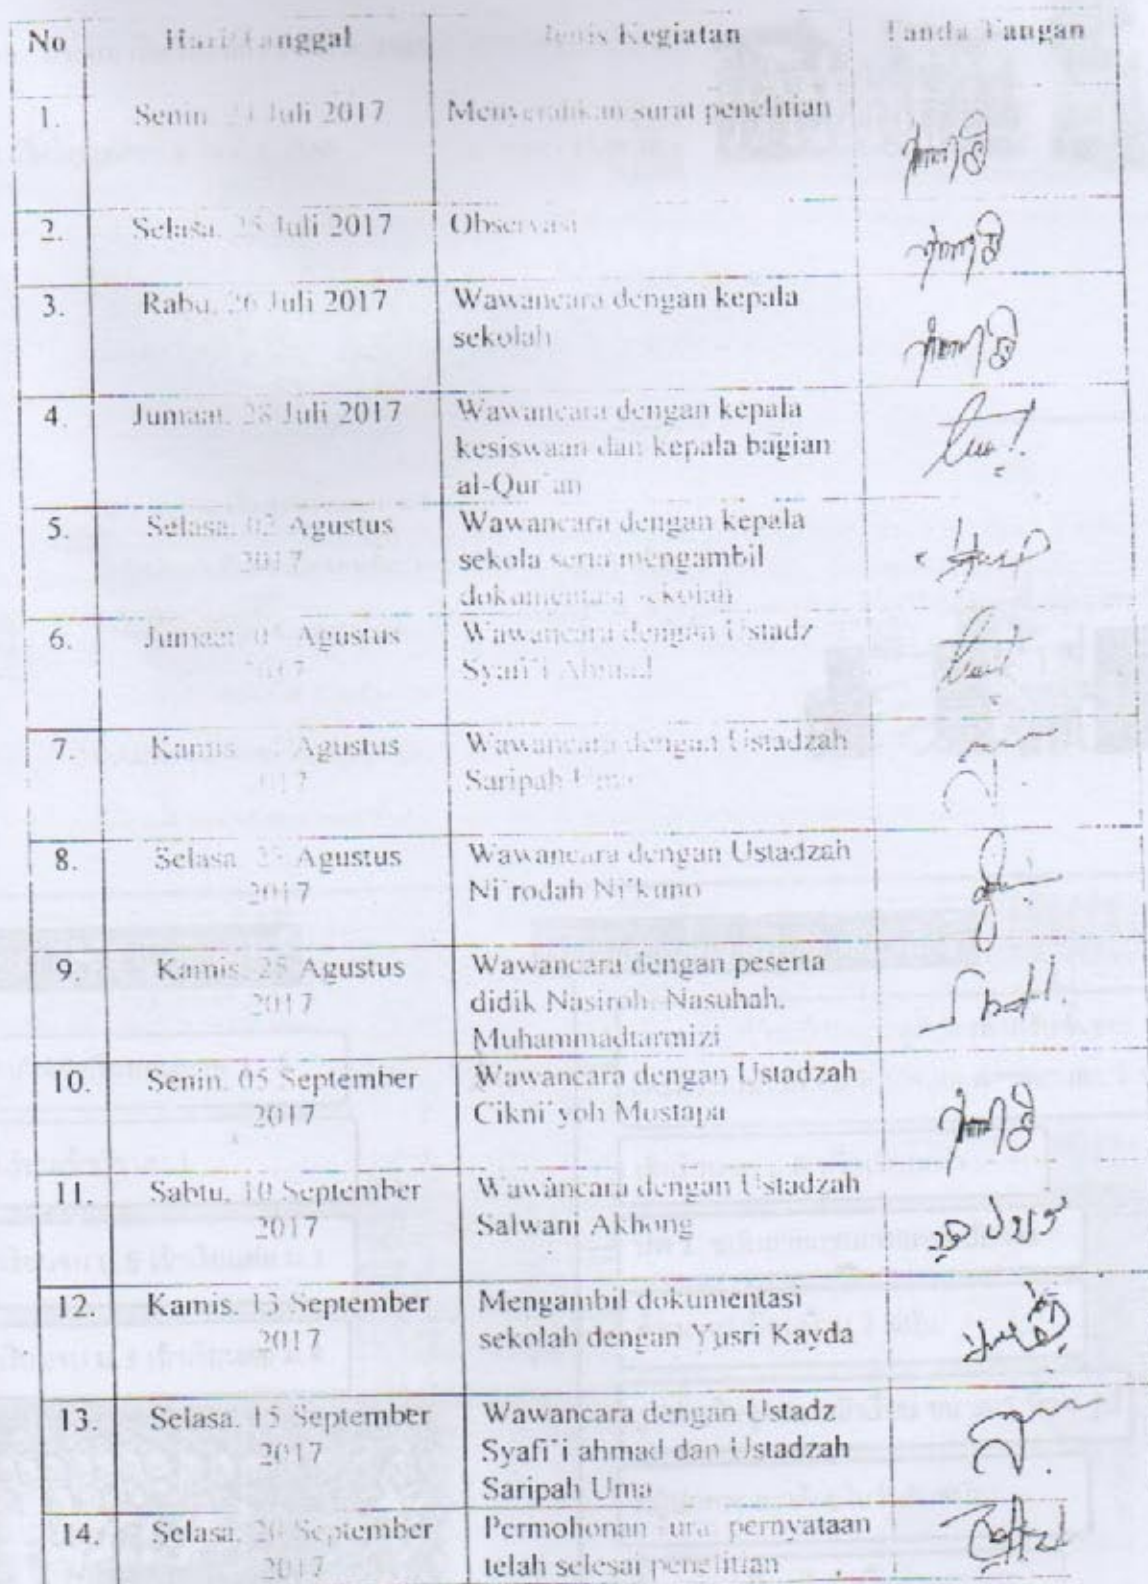 No Hari/Tanggal Jenis Kegiatan Tanda Tangan
1. Senin, 24 Juli 2017 Menyerahkan surat penelitian
2. Selasa, 25 Juli 2017 Observasi
3. Rabu, 26 Juli 2017 Wawancara dengan kepala
sekolah
4. Jumaat, 28 Juli 2017 Wawancara dengan kepala
kesiswaan dan kepala bagian
al-Qur`an
5. Selasa, 02 Agustus Wawancara dengan kepala
2017 sekola serta mengambil
dokumentasi sekolah
6. Jumaat, Agustus Wawancara dengan Ustadz
2017 Syafi`i Ahmad
7. Kamis, Agustus Wawancara dengan Ustadzah
2017 Saripah Uma
8. Selasa, Agustus Wawancara dengan Ustadzah
2017 Ni`rodah Ni`kuno
9. Kamis, 25 Agustus Wawancara dengan peserta
2017 didik Nasiroh, Nasuhah,
Muhammadtarmizi
10. Senin, 05 September Wawancara dengan Ustadzah
2017 Cikni`yoh Mustapa
11. Sabtu, 10 September Wawancara dengan Ustadzah
2017 Salwani Akhong
12. Kamis, 13 September Mengambil dokumentasi
2017 sekolah dengan Yusri Kayda
13. Selasa, 15 September Wawancara dengan Ustadz
2017 Syafi`i ahmad dan Ustadzah
Saripah Uma
14. Selasa, 20 September Permohonan surat pernyataan
2017 telah selesai penelitian